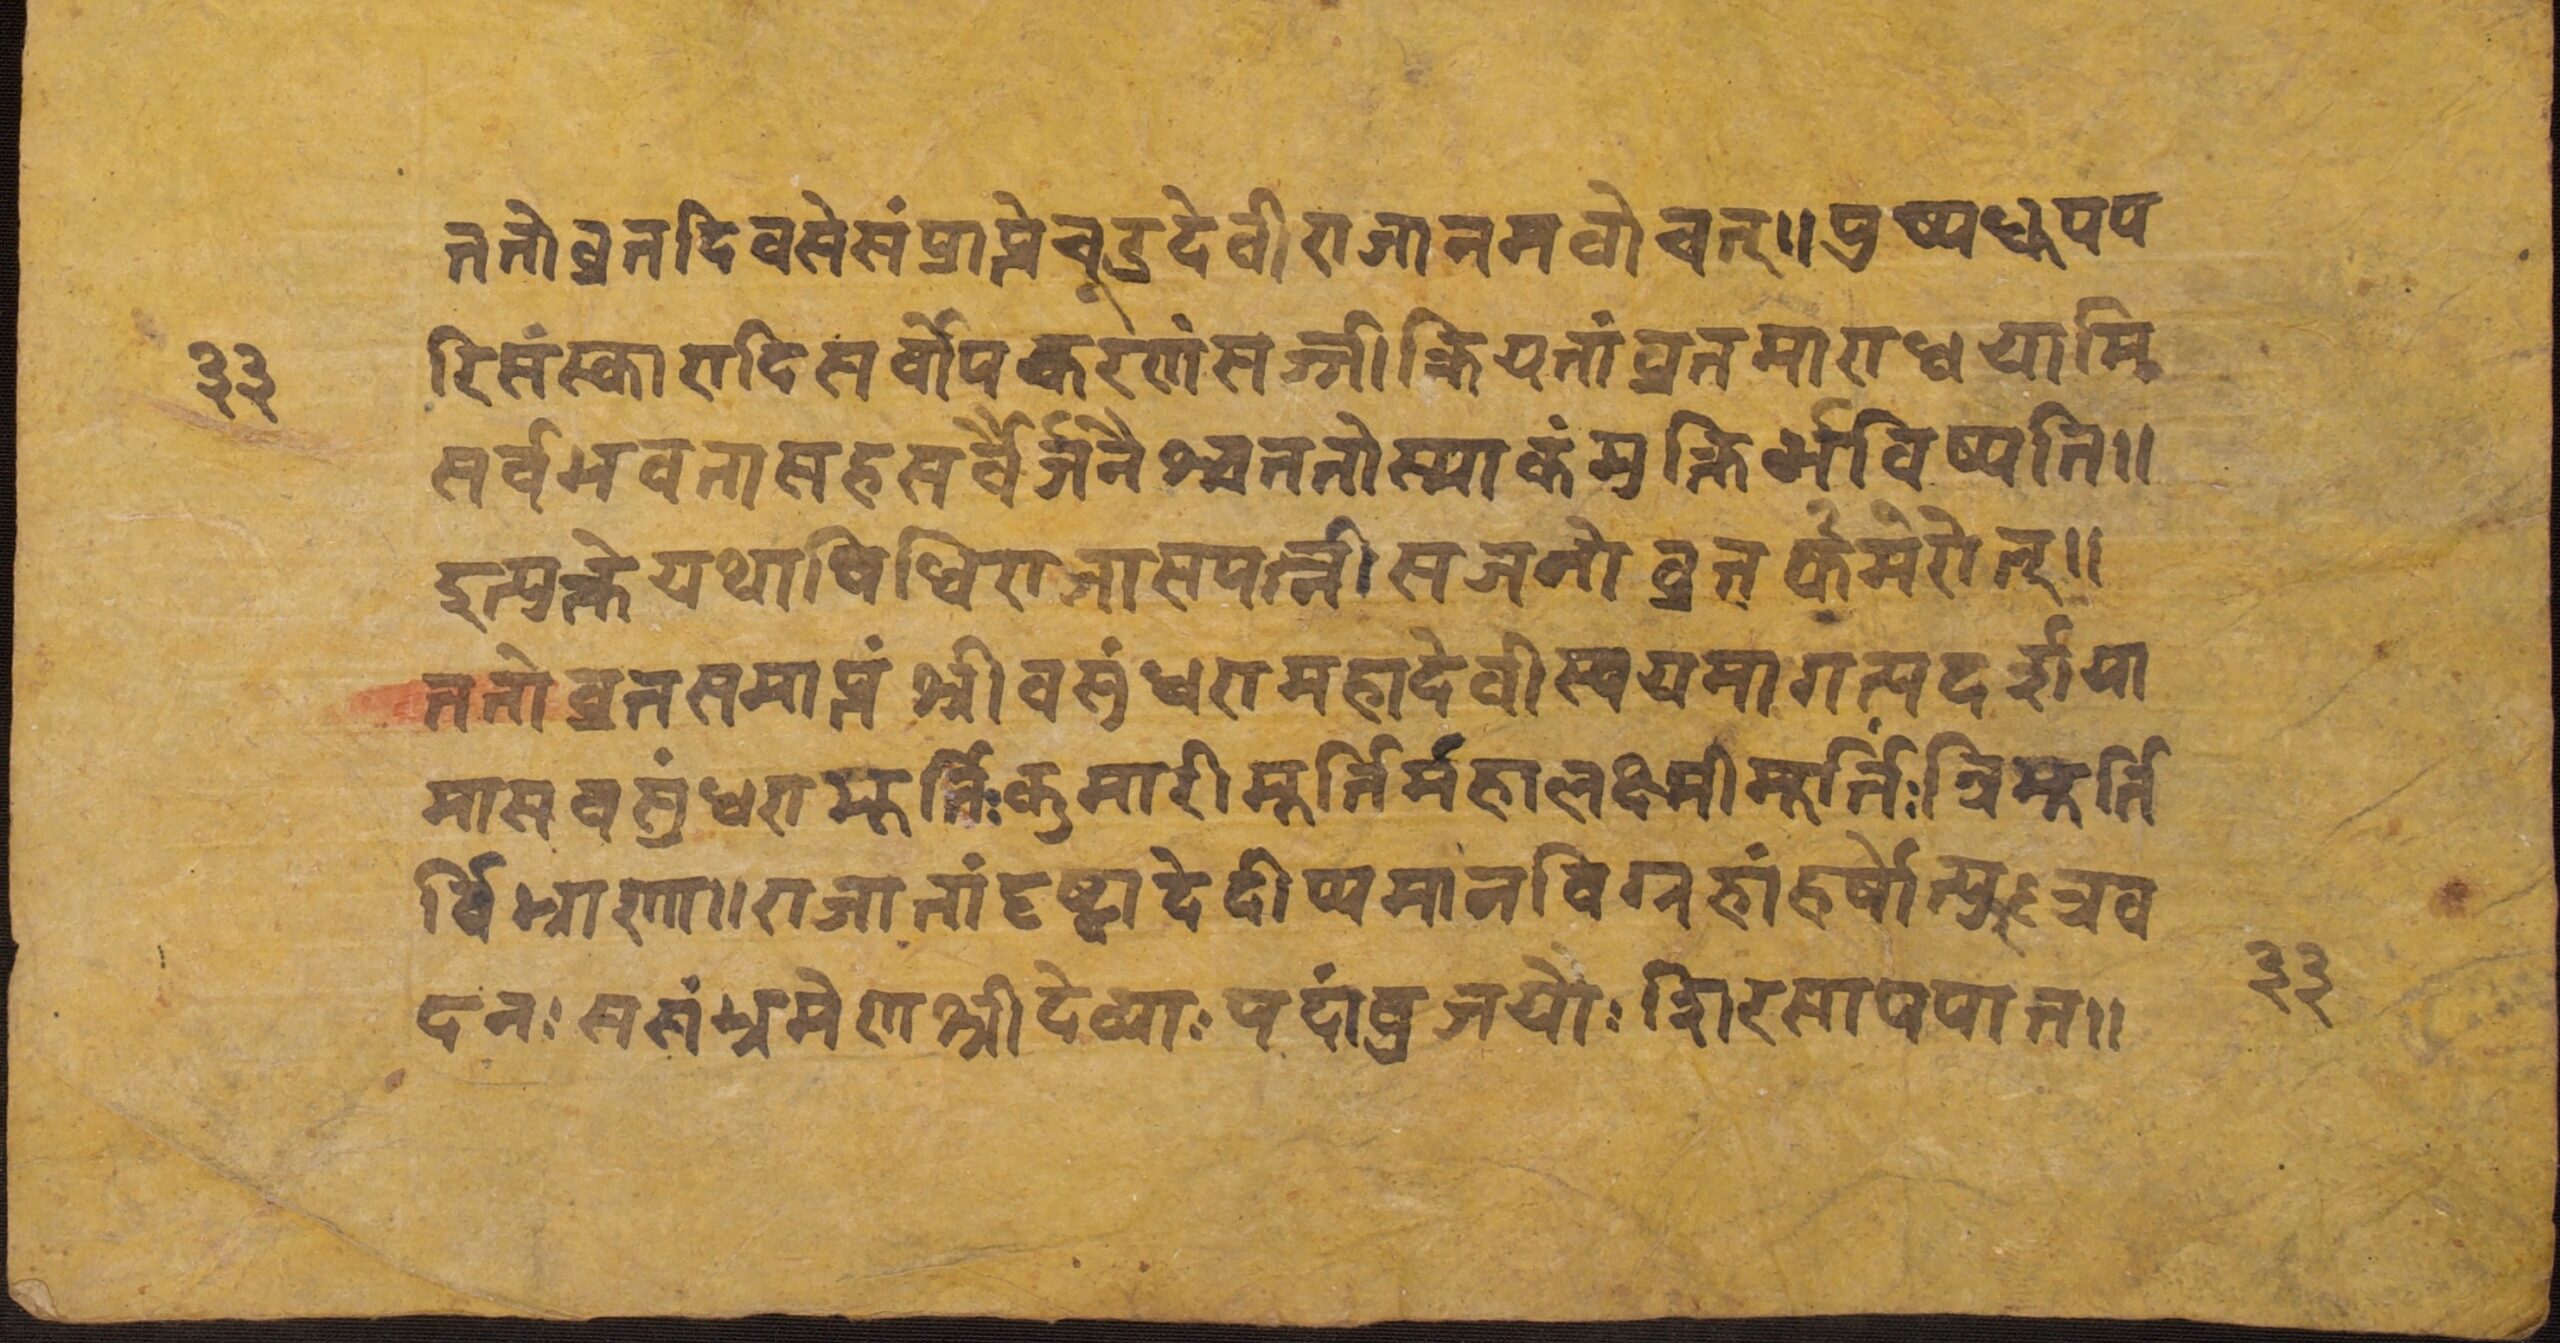 ततोव्रतदिवसेसंप्राप्तेचूडदेवीराजानमवोचत्॥पुष्पधूपप
३३ रिसंस्कारादिसर्वोपकरणंसज्जीक्रियतांव्रतमाराधयामि
सर्वभवतासहसर्वैर्जनैश्चततोस्माकंमुक्तिर्भविष्यति॥
इत्युक्तेयथाविधिराजासपत्नीसजनोव्रत
ततोव्रतसमाप्तंश्रीवसुंधरामहादेवीस्वयमागत्यदर्शया
मासवसुंधरामूर्तिःकुमारीमूर्तिर्महालक्ष्मीमूर्तिःत्रिमूर्ति
र्विभ्राणा॥राजातांदृष्ट्वादेदीप्यमानविग्रहांहर्षो
दनःससंभ्रमेणश्रीदेव्याःपदांवुजयोःशिरसापपात॥ ३३